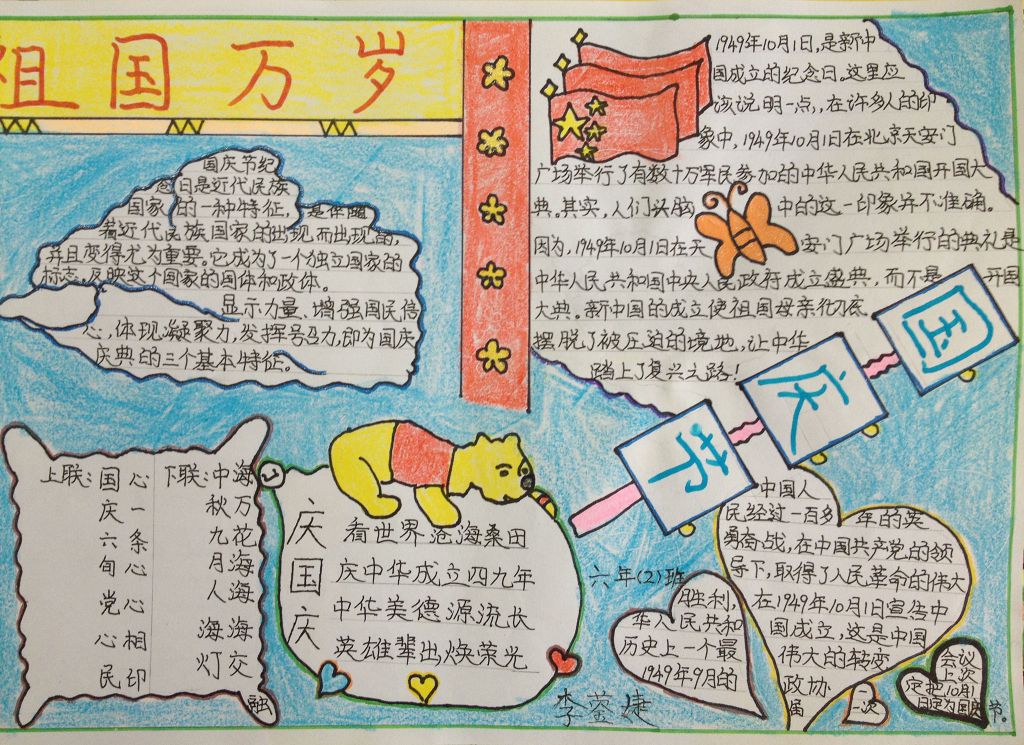 祖国万岁
国庆节纪
念日是近代民族
国家的一种特征,是伴随
着近代民族国家的出现而出现的,
并且变得尤为重要。它成为了一个独立国家的
标志,反映这个国家的国体和政体。
显示力量、增强国民信
心,体现凝聚力,发挥号召力,即为国庆
庆典的三个基本特征。
1949年10月1日,是新中
国成立的纪念日。这里应
该说明一点,在许多人的印
象中,1949年10月1日在北京天安门
广场举行了有数十万军民参加的中华人民共和国开国大
典。其实,人们头脑中的这一印象并不准确。
因为,1949年10月1日在天安门广场举行的典礼是
中华人民共和国中央人民政府成立盛典,而不是开国
大典。新中国的成立使祖国母亲彻底
摆脱了被压迫的境地,让中华
踏上了复兴之路!
国庆节
上联:国庆六旬党心民
心一条心心相印
下联:中秋九月人海灯
海万花海海海交融
庆国庆
看世界沧海桑田
庆中华成立四九年
中华美德源流长
英雄辈出焕荣光
六年(2)班
李蓥婕
中国人
民经过一百多年的英
勇奋战,在中国共产党的领
导下,取得了人民革命的伟大
胜利,
在1949年10月1日宣告中
华人民共和
国成立,这是中国
历史上一个最
伟大的转变
1949年9月的
政协
一届
一次
会议
上次
定把10月1
日定为国庆节。